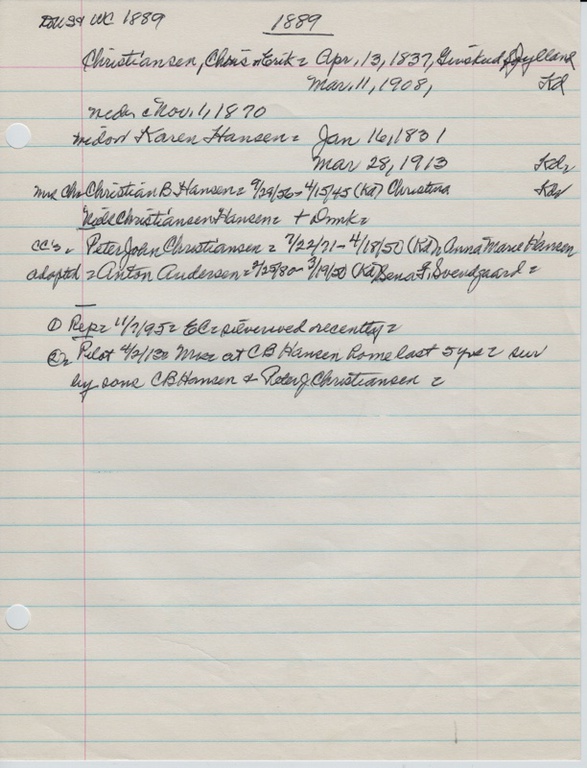 WC 1889 1889
Christiansen, Chris Erik = Apr. 13, 1837, Jylland
Mar. 11, 1908, Kd
Nov. 1, 1870
widow Karen Hansen = Jan 16, 1831
Mar 28, 1913 Kd
Christian B Hansen = 9/29/56 - 4/15/45 (Kd) Christina Kd
Christiansen Hansen = + Dmk =
CC's = Peter John Christiansen = 7/22/71 - 4/18/50 (Kd) Anna Marie Hansen
adopted = Anton Andersen = 2/25/80 - 3/19/50 (Kd) Bena F. Svendgaard =
① Rep = 11/7/95 = EC = silverwed recently =
② Pilot 4/2/13 = Mrs = at CB Hansen home last 5 yrs = sur
by sons CB Hansen & Peter J Christiansen =